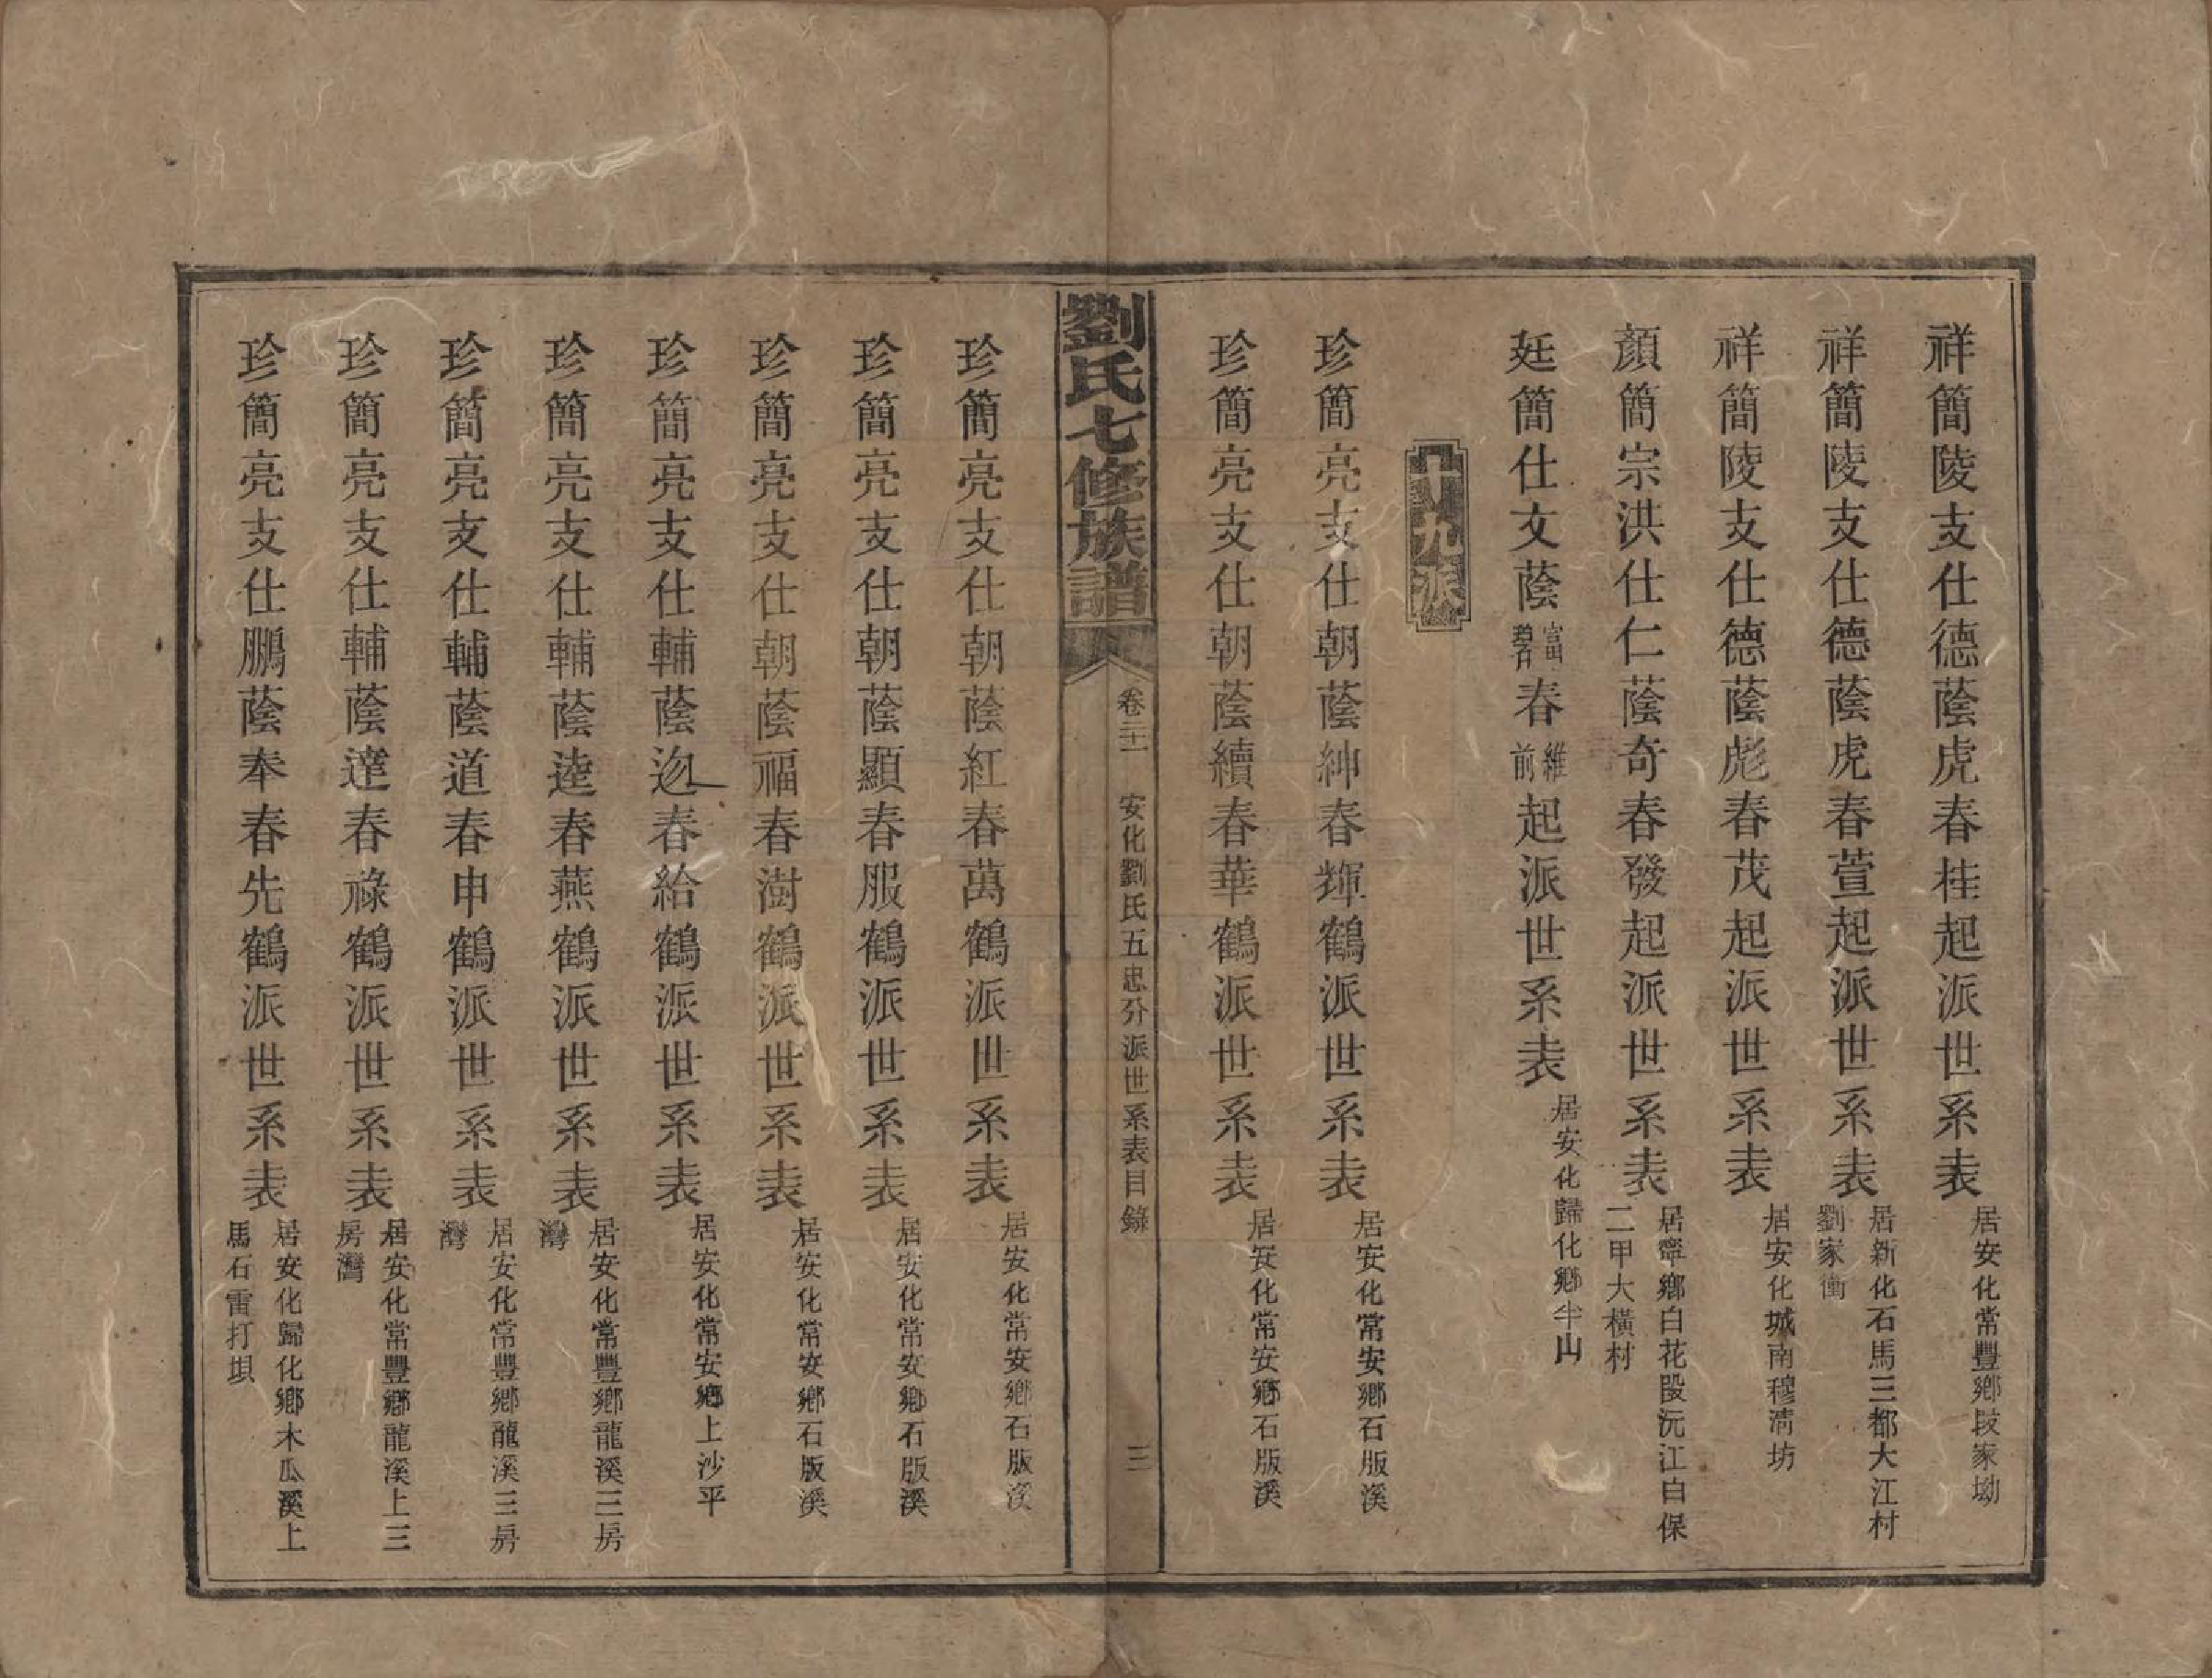 祥簡陵支仕德蔭虎春桂起派世系表 居安化常豐鄉段家坳
祥簡陵支仕德蔭虎春萱起派世系表 居新化石馬三都大江村劉家衝
祥簡陵支仕德蔭彪春茂起派世系表 居安化城南穆清坊
顏簡宗洪仕仁蔭奇春發起派世系表 居寧鄉白花段沅江白保二甲大橫村
廷簡仕文蔭富碧春維前起派世系表 居安化歸化鄉半山
十九派
珍簡亮支仕朝蔭紳春輝鶴派世系表 居安化常安鄉石版溪
珍簡亮支仕朝蔭續春華鶴派世系表 居安化常安鄉石版溪
劉氏七修族譜 卷三十一 安化劉氏五忠分派世系表目錄 三
珍簡亮支仕朝蔭紅春萬鶴派世系表 居安化常安鄉石版溪
珍簡亮支仕朝蔭顯春服鶴派世系表 居安化常安鄉石版溪
珍簡亮支仕朝蔭福春澍鶴派世系表 居安化常安鄉石版溪
珍簡亮支仕輔蔭迯春給鶴派世系表 居安化常安鄉上沙平
珍簡亮支仕輔蔭逵春燕鶴派世系表 居安化常豐鄉龍溪三房灣
珍簡亮支仕輔蔭道春申鶴派世系表 居安化常豐鄉龍溪三房灣
珍簡亮支仕輔蔭達春祿鶴派世系表 居安化常豐鄉龍溪上三房灣
珍簡亮支仕鵬蔭奉春先鶴派世系表 居安化歸化鄉木瓜溪上馬石雷打垻